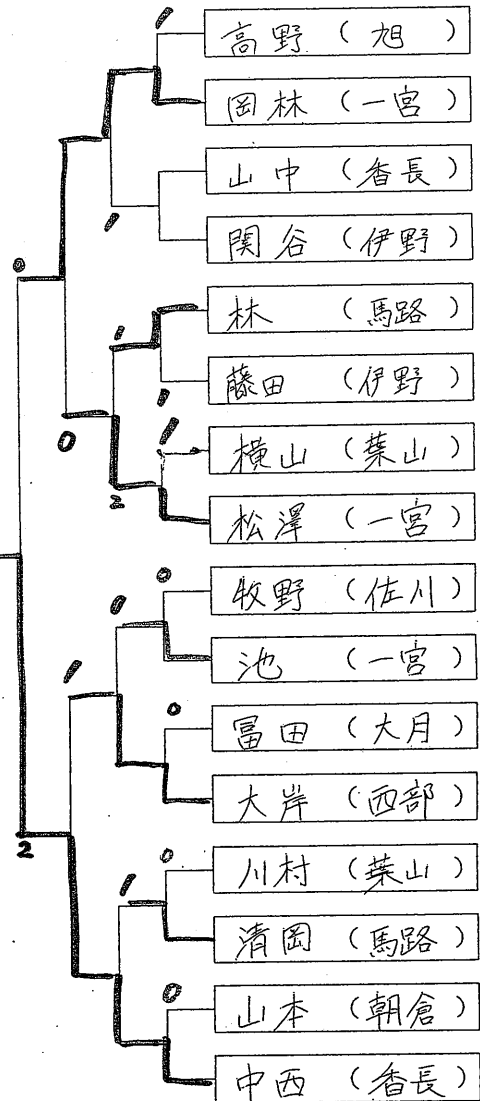 高野 (旭)
岡林 (一宮)
山中 (香長)
関谷 (伊野)
林 (馬路)
藤田 (伊野)
横山 (葉山)
松澤 (一宮)
牧野 (佐川)
池 (一宮)
冨田 (大月)
大岸 (西部)
川村 (葉山)
清岡 (馬路)
山本 (朝倉)
中西 (香長)
1
1
0
1
1
1
0
2
0
0
1
0
2
0
1
0